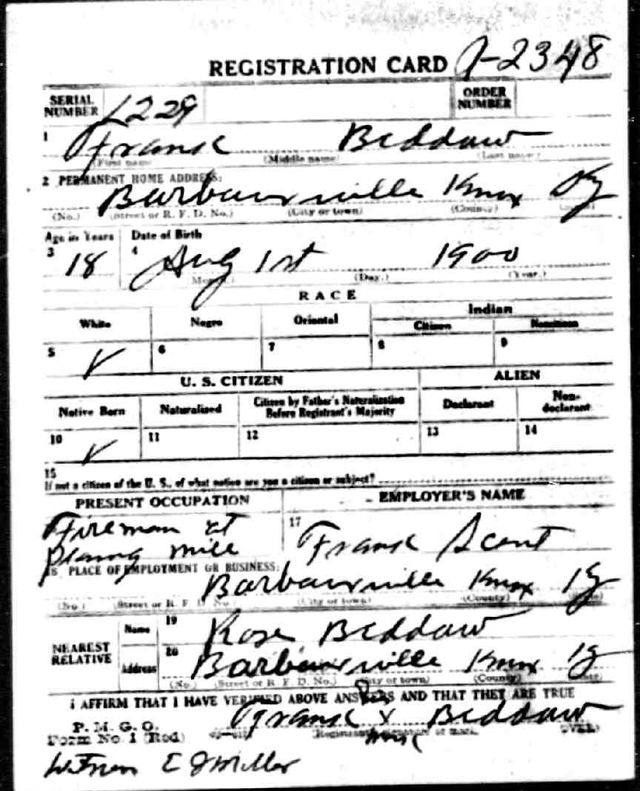 REGISTRATION CARD A-2348
SERIAL NUMBER 1229 ORDER NUMBER
1 Frank Beddaw
(First name) (Middle name) (Last name)
2 PERMANENT HOME ADDRESS:
Barbourville Knox Ky
(No.) (Street or R. F. D. No.) (City or town) (County)
Age in Years Date of Birth
3 18 4 Aug 1st 1900
(Month.) (Day.) (Year.)
RACE
White Negro Oriental Indian
Citizen Noncitizen
5 ✓ 6 7 8 9
U. S. CITIZEN ALIEN
Native Born Naturalized Citizen by Father's Naturalization Before Registrant's Majority Declarant Non-declarant
10 ✓ 11 12 13 14
15
If not a citizen of the U. S., of what nation are you a citizen or subject?
PRESENT OCCUPATION EMPLOYER'S NAME
Fireman at 17 Frank
Planng Mill
PLACE OF EMPLOYMENT OR BUSINESS:
Barbourville Knox Ky
(No.) (Street or R. F. D. No.) (City or town) (County)
NEAREST RELATIVE Name 19 Rose Beddaw
Address 20 Barbourville Knox Ky
(No.) (Street or R. F. D. No.) (City or town) (County)
I AFFIRM THAT I HAVE VERIFIED ABOVE ANSWERS AND THAT THEY ARE TRUE
P. M. G. O.
Form No. 1 (Red) Frank x Beddaw
his
mark
(Registrant's signature or mark.) (OVER)
Witness E J Miller